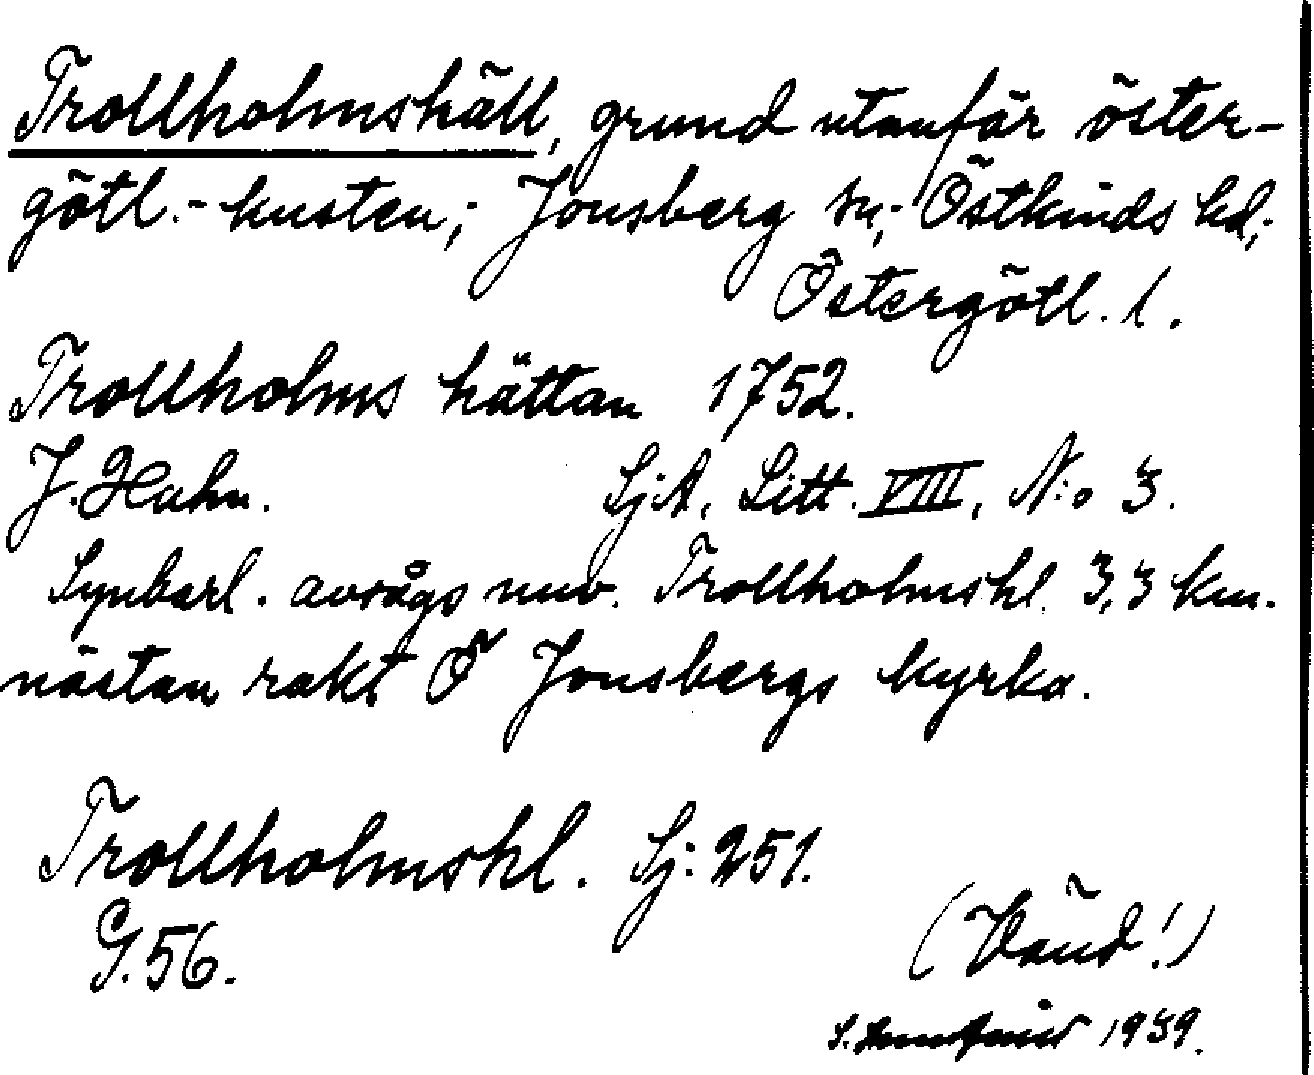 Trollholmshäll, grund utanför öster-
götl.-kusten; Jonsberg sn; Östkinds hd;
Östergötl. l.
Trollholms hättan 1752.
J. Hahn. SjA, Litt. VIII, N:o 3.
Synbarl. avsågs nuv. Trollholmshl. 3,3 km.
nästan rakt Ö Jonsbergs kyrka.
Trollholmshl. Sj: 251.
G. 56.
(Vänd!)
S. 1939.